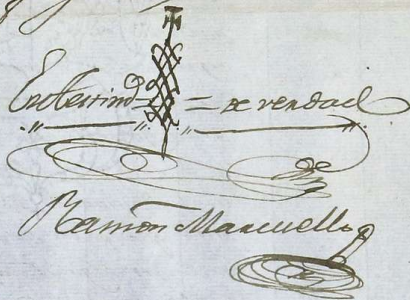 En testim.o = = de verdad
Ramón Marcuello